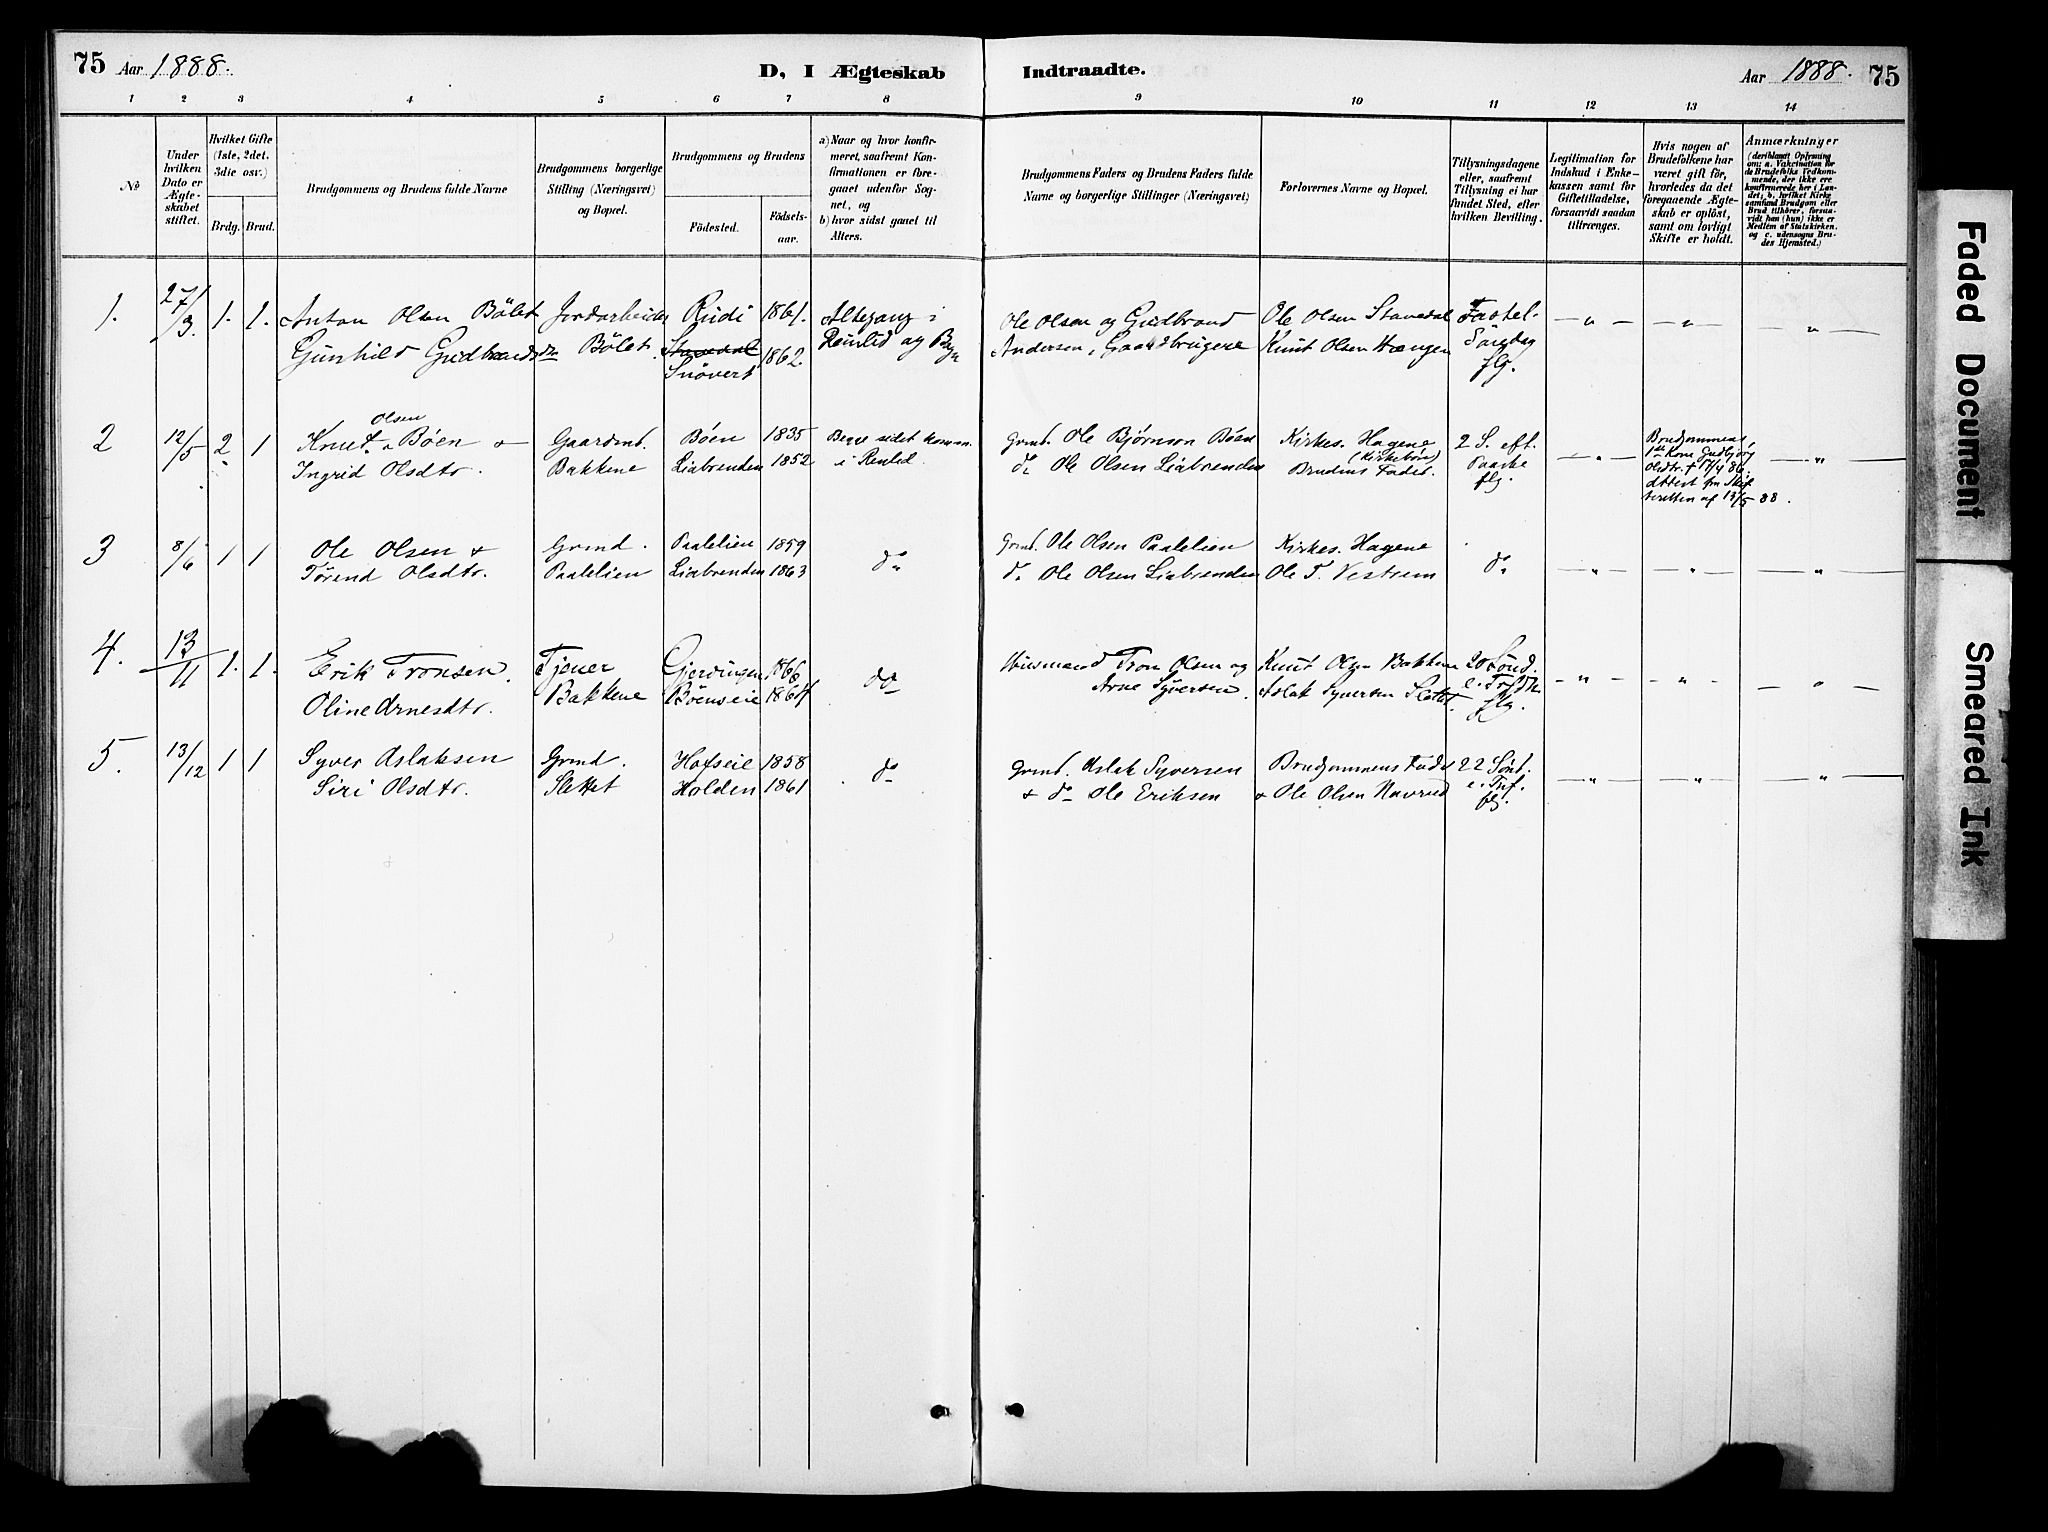 75 Aar 1888. D, I Ægteskab Indtraadte. Aar 1888. 75
1 2 3 4 5 6 7 8 9 10 11 12 13 14
No
Under hvilken Dato er Ægteskabet stiftet.
Hvilket Gifte (1ste, 2det, 3die osv.)
Brdg. Brud.
Brudgommens og Brudens fulde Navne
Brudgommens borgerlige Stilling (Næringsvei) og Bopæl.
Brudgommens og Brudens
Födested.
Födsels-aar.
a) Naar og hvor konfirmeret, saafremt Konfirmationen er foregaaet udenfor Sognet, og
b) hvor sidst gaaet til Alters.
Brudgommens Faders og Brudens Faders fulde Navne og borgerlige Stillinger (Næringsvei)
Forlovernes Navne og Bopæl.
Tillysningsdagene eller, saafremt Tillysning ei har fundet Sted, efter hvilken Bevilling.
Legitimation for Indskud i Enkekassen samt for Giftetilladelse, forsaavidt saadan tiltrænges.
Hvis nogen af Brudefolkene har været gift för, hvorledes da det foregaaende Ægteskab er oplöst, samt om lovligt Skifte er holdt.
Anmærkninger
(deriblandt Oplysning om: a. Vakcination for de Brudefolks Vedkommende, der ikke ere konfirmerede her i Landet; b. hvilket Kirkesamfund Brudgom eller Brud tilhörer, forsaavidt han (hun) ikke er Medlem af Statskirken, og c. udensogns Brudes Hjemsted.)
1. 27/3 1. 1. Anton Olsen Bölet Jordarbeider Rudi 1861. Altergang i Ole Olsen og Gudbrand Ole Olsen Stavedal Fastel-
Gunhild Gudbrandsdr. Bölet. Stavedal 1862. Reinlid og Bagn Andersen, Gaardbrugere Knut Olsen Hængen Söndag
Snövert flg.
2 12/5 2 1 Knut Olsen Böen & Gaardmd. Böen 1835 Begge sidst komm. Grmd. Ole Bjørnson Böen Kirkes. Hagene (Kirkebön) 2 S. eft. Brudgommens
Ingrid Olsdtr. Bakkene Liabrenden 1852 i Reinlid. do Ole Olsen Liabrenden Brudens Fader. Paaske flg. 1ste Kone Gudbjörg
Olsdtr. † 17/4 86.
Attest fra Skif-
teretten af 13/5 88.
3 8/6 1 1 Ole Olsen & Grmd. Paalelien 1859 do Grmd. Ole Olsen Paalelien Kirkes. Hagene do
Törend Olsdtr. Paalelien Liabrenden 1863 do Ole Olsen Liabrenden Ole T. Vestrum
4. 13/11 1. 1. Erik Tronsen. Tjener Gjerdingen 1866 do Husmænd Tron Olsen og Knut Olsen Bakken 20 Sönd.
Oline Arnesdtr. Bakkene Böenseie 1864 Arne Syversen. Aslak Syversen Slettet. e. Trf.
flg.
5. 13/12 1 1 Syver Aslaksen Grmd. Hofseie 1858 do Grmd. Aslak Syversen Brudgommens Fader 22 Sönd.
Siri Olsdtr. Slettet Holden 1861 & do Ole Eriksen & Ole Olsen Havrud e. Trf.
flg.
Faded Document
Smeared Ink